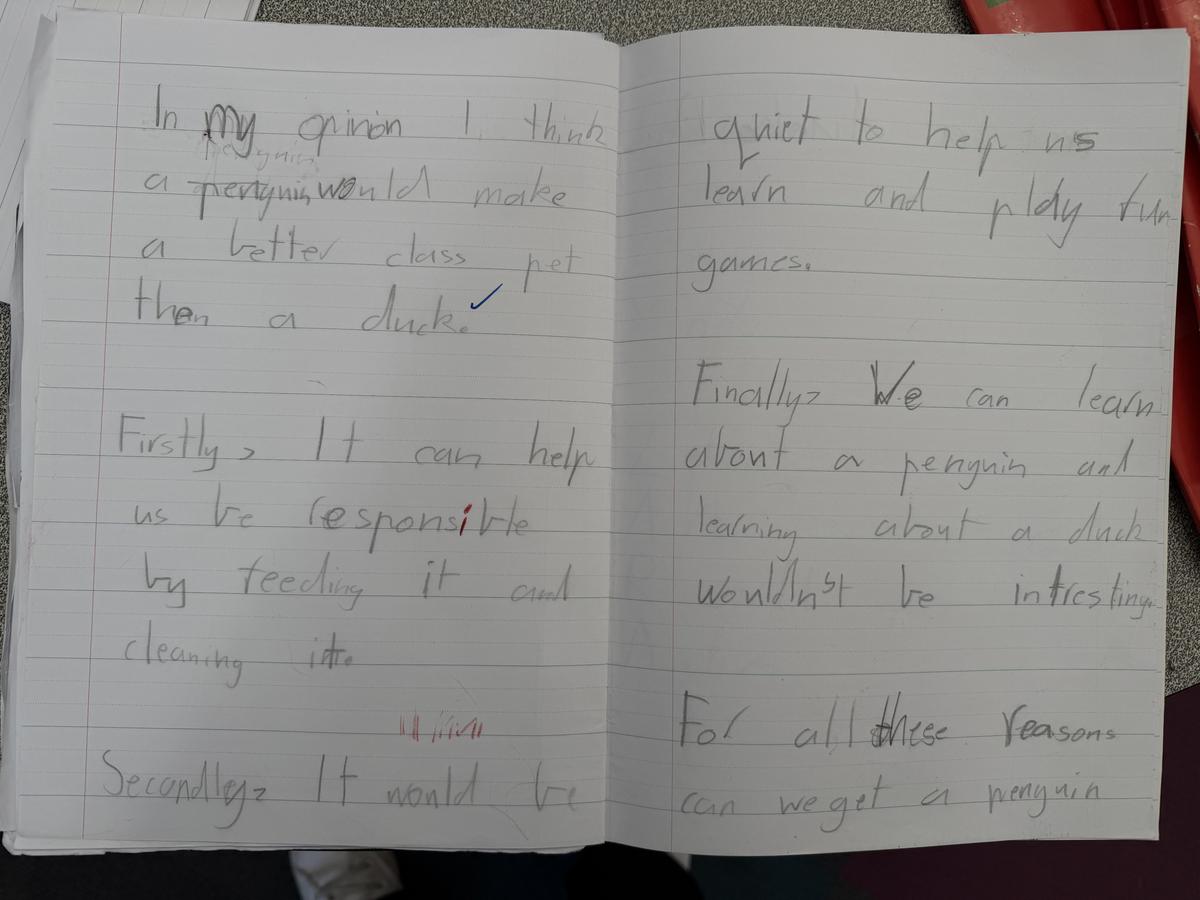 In my opinion I think
a penguin would make
a better class pet
then a duck.
Firstly, It can help
us be responsible
by feeding it and
cleaning it.
Secondly, It would be
quiet to help us
learn and play fun
games.
Finally, We can learn
about a penguin and
learning about a duck
wouldn't be intresting.
For all these reasons
can we get a penguin